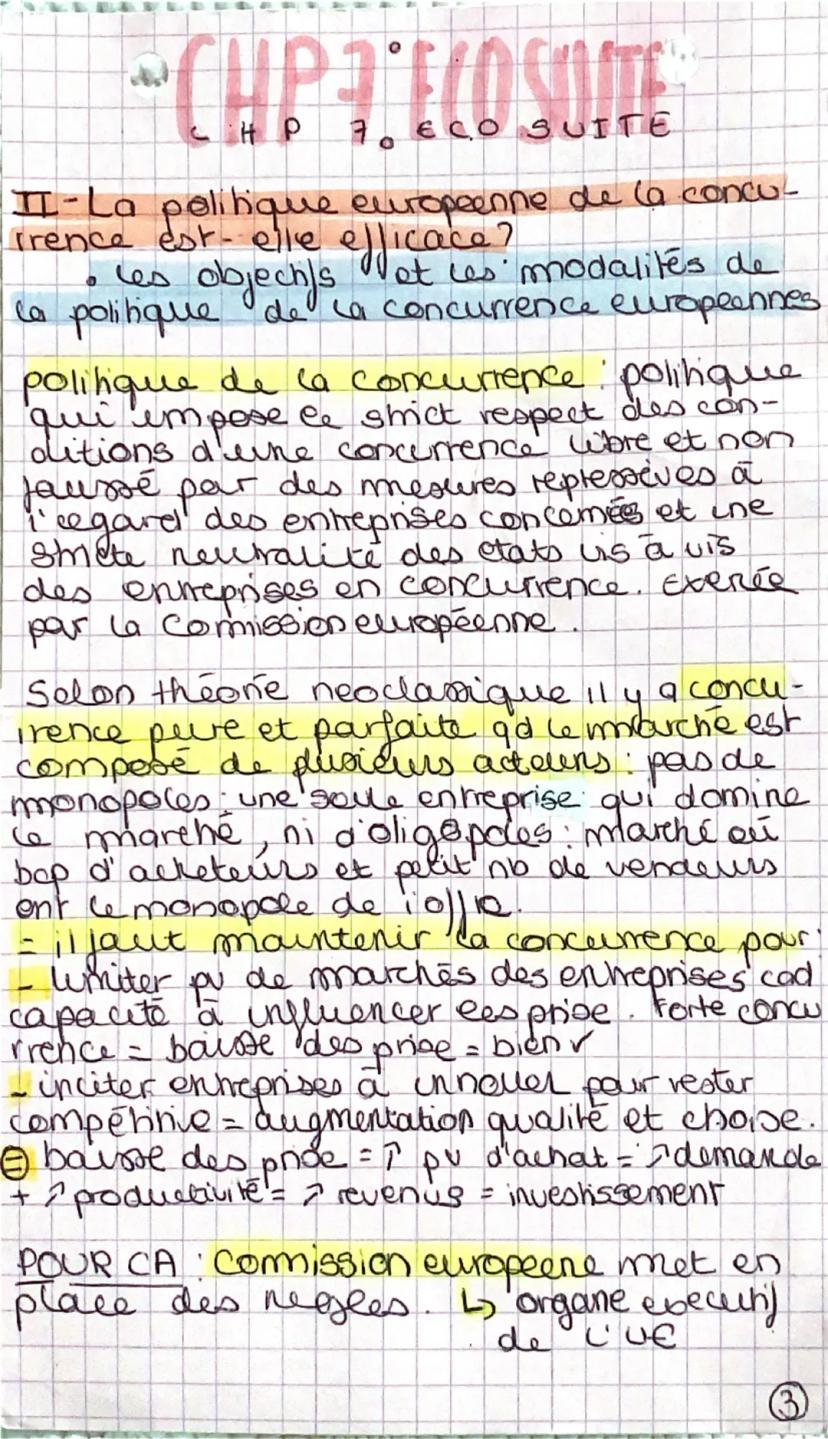 CHP 7° ECO SUITE
CHP 7. ECO SUITE
II - La politique europeenne de la concu-
rrence est-elle efficace?
• les objectifs et les modalités de
la politique de la concurrence europeannes
politique de la concurrence : politique
qui impose le strict respect des con-
ditions d'une concurrence libre et non
faussé par des mesures repressives à
l'egard des entreprises concernées et une
stricte neutralité des etats vis à vis
des entreprises en concurrence. Exercée
par la Commission européenne.
Selon théorie neoclassique il y a concu-
rrence pure et parfaite qd le marché est
composé de plusieurs acteurs : pas de
monopoles : une seule entreprise qui domine
le marché, ni d'oligopoles : marché où
bcp d'acheteurs et petit nb de vendeurs
ont le monopole de l'offre.
= il faut maintenir la concurrence pour :
- limiter pv de marchés des entreprises cad
capacité à influencer les prise. Forte concu
rrence = baisse des prise = bien v
- inciter entreprises à innover pour rester
compétitive = augmentation qualité et choise.
= baisse des prise = ↑ pv d'achat = ↗ demande
+ ↗ productivité = ↗ revenus = investissement
POUR CA : Commission europeene met en
place des regles. ↳ organe executif
de l'UE
3